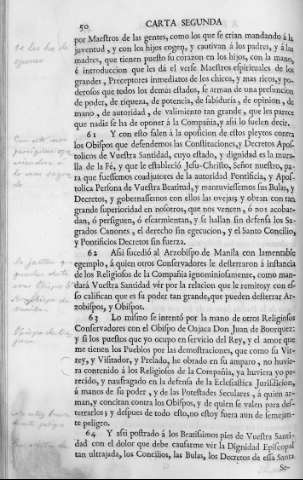 50 CARTA SEGUNDA
por Maestros de las gentes, como los que se crian mandando á la
juventud, y con los hijos cogen, y cautivan á los padres, y á las
madres, que tienen puesto su corazon en los hijos, con la mano,
é introduccion que les dá el verse Maestros espirituales de los
grandes, Preceptores inmediatos de los chicos, y mas ricos, y po-
derosos que todos los demás estados, se arman de una presuncion
de poder, de riqueza, de potencia, de sabiduria, de opinion, de
mano, de autoridad, de valimiento tan grande, que les parece
que nadie se ha de oponer á la Compañia, y asi lo suelen decir.
61 Y con esto salen á la oposicion de estos pleytos contra
los Obispos que defendemos las Constituciones, y Decretos Apos-
tolicos de Vuestra Santidad, cuyo estado, y dignidad es la mura-
lla de la Fé, y que le estableció Jesu-Christo, Señor nuestro, pa-
ra que fuesemos coadjutores de la autoridad Pontificia, y Apos-
tolica Persona de Vuestra Beatitud, y mantuviesemos sus Bulas, y
Decretos, y gobernasemos con ellos las ovejas, y obran con tan
grande superioridad en nosotros, que nos vencen, ó nos acobar-
dan, ó persiguen, ó escarmientan, y se hallan sin defensa los Sa-
grados Canones, el derecho sin egecucion, y el Santo Concilio,
y Pontificios Decretos sin fuerza.
62 Asi sucedió al Arzobispo de Manila con lamentable
egemplo, á quien otros Conservadores le desterraron á instancia
de los Religiosos de la Compañia ignominiosamente, como man-
dará Vuestra Santidad vér por la relacion que le remito; y con es-
so califican que es su poder tan grande, que pueden desterrar Ar-
zobispos, y Obispos.
63 Lo mismo se intentó por la mano de otros Religiosos
Conservadores con el Obispo de Oajaca Don Juan de Boorquez;
y si los puestos que yo ocupo en servicio del Rey, y el amor que
me tienen los Pueblos por las demostraciones, que como su Vir-
rey, y Visitador, y Prelado, he obrado en su amparo, no huvie-
ra contenido á los Religiosos de la Compañia, ya huviera yo pe-
recido, y naufragado en la defensa de la Eclesiastica Jurisdicion,
á manos de su poder, y de las Potestades Seculares, á quien ar-
man, y concitan contra los Obispos, y de quien se valen para des-
terrarlos; y despues de todo esto, no estoy fuera aun de semejan-
te peligro.
64 Y asi postrado á los Beatisimos pies de Vuestra Santi-
dad con el dolor que debe causarme vér la Dignidad Episcopal
tan ultrajada, los Concilios, las Bulas, los Decretos de essa Santa
Se-